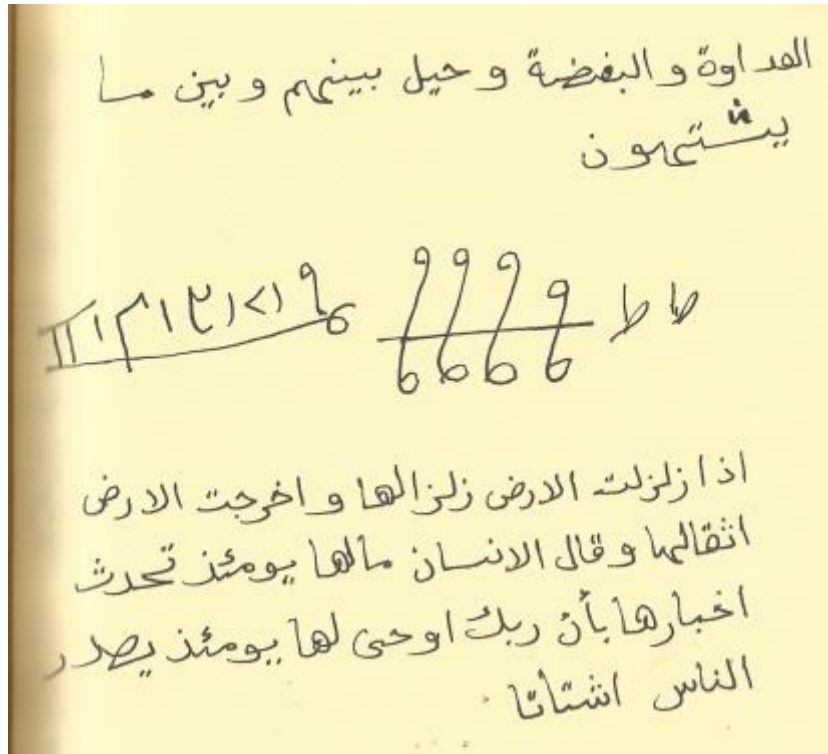 العداوة و البغضة و حيل بينهم و بين ما
يشتهون
ط ط
اذا زلزلت الارض زلزالها و اخرجت الارض
اثقالها و قال الانسان مالها يومئذ تحدث
اخبارها بأن ربك اوحى لها يومئذ يصدر
الناس اشتاتا